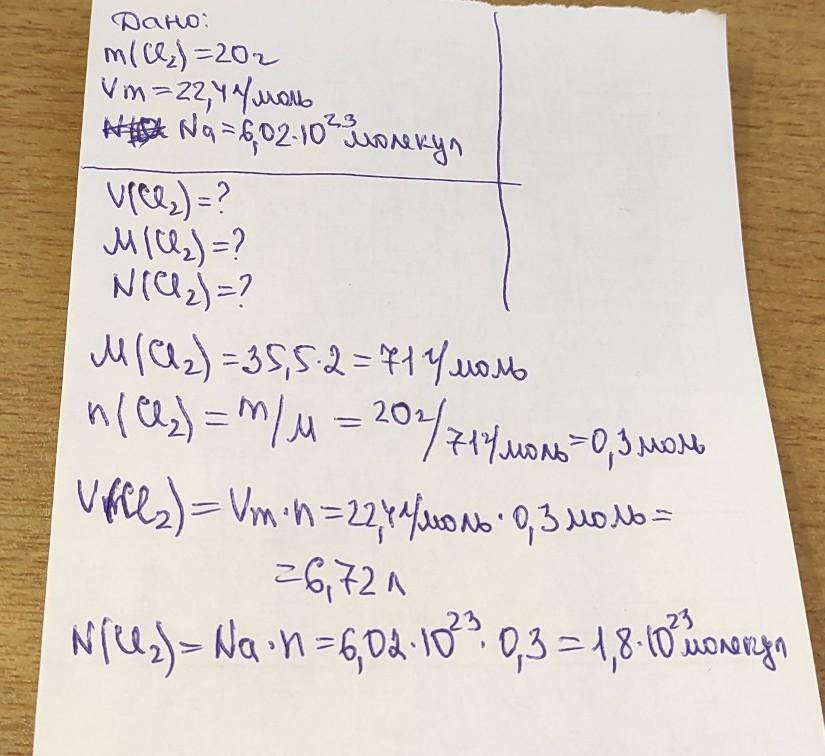 Дано:
m(Cl₂)=20г
Vm=22,4 г/моль
Na=6,02·10²³ молекул
V(Cl₂)=?
M(Cl₂)=?
N(Cl₂)=?
M(Cl₂)=35,5·2=71 г/моль
n(Cl₂)=m/M=20г/71г/моль=0,3моль
V(Cl₂)=Vm·n=22,4г/моль·0,3моль=
=6,72л
N(Cl₂)=Na·n=6,02·10²³·0,3=1,8·10²³молекул